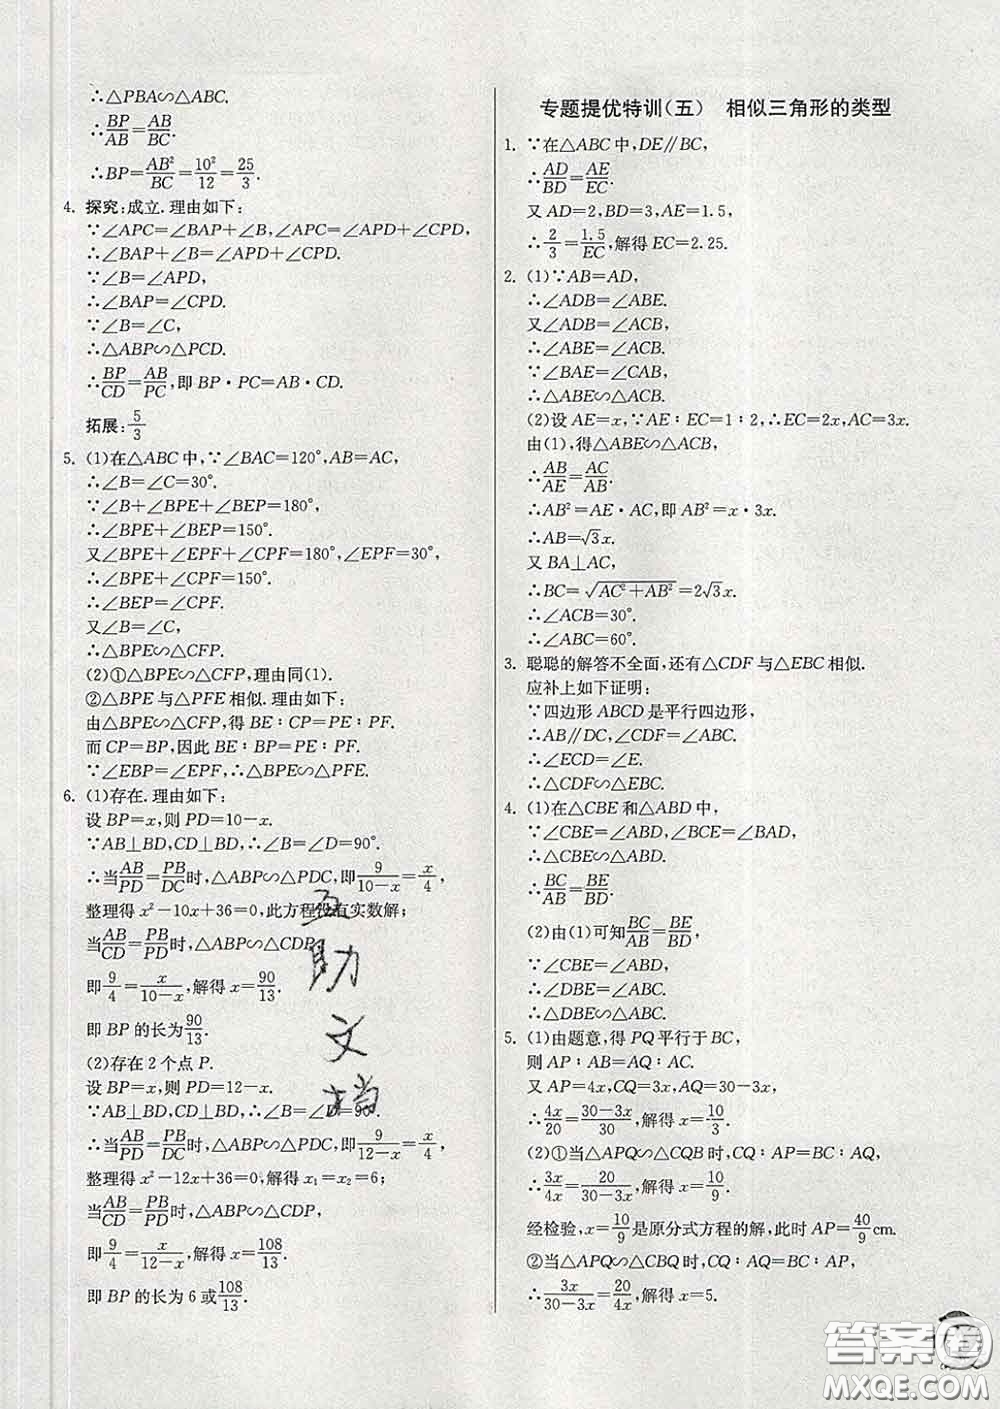 ∴△PBA∽△ABC.
∴BP/AB=AB/BC.
∴BP=AB²/BC=10²/12=25/3.
4. 探究:成立.理由如下:
∵∠APC=∠BAP+∠B,∠APC=∠APD+∠CPD,
∴∠BAP+∠B=∠APD+∠CPD.
∵∠B=∠APD,
∴∠BAP=∠CPD.
∵∠B=∠C,
∴△ABP∽△PCD.
∴BP/CD=AB/PC,即BP·PC=AB·CD.
拓展:5/3
5. (1)在△ABC中,∵∠BAC=120°,AB=AC,
∴∠B=∠C=30°.
∵∠B+∠BPE+∠BEP=180°,
∴∠BPE+∠BEP=150°.
又∠BPE+∠EPF+∠CPF=180°,∠EPF=30°,
∴∠BPE+∠CPF=150°.
∴∠BEP=∠CPF.
又∠B=∠C,
∴△BPE∽△CFP.
(2)①△BPE∽△CFP,理由同(1).
②△BPE与△PFE相似.理由如下:
由△BPE∽△CFP,得BE∶CP=PE∶PF.
而CP=BP,因此BE∶BP=PE∶PF.
∵∠EBP=∠EPF,∴△BPE∽△PFE.
6. (1)存在.理由如下:
设BP=x,则PD=10-x.
∵AB⊥BD,CD⊥BD,∴∠B=∠D=90°.
∴当AB/PD=PB/DC时,△ABP∽△PDC,即9/(10-x)=x/4,
整理得x²-10x+36=0,此方程没有实数解;
当AB/CD=PB/PD时,△ABP∽△CDP,
即9/4=x/(10-x),解得x=90/13.
即BP的长为90/13.
(2)存在2个点P.
设BP=x,则PD=12-x.
∵AB⊥BD,CD⊥BD,∴∠B=∠D=90°.
∴当AB/PD=PB/DC时,△ABP∽△PDC,即9/(12-x)=x/4,
整理得x²-12x+36=0,解得x₁=x₂=6;
当AB/CD=PB/PD时,△ABP∽△CDP,
即9/4=x/(12-x),解得x=108/13.
即BP的长为6或108/13.
互
助
文
档
专题提优特训(五) 相似三角形的类型
1. ∵在△ABC中,DE∥BC,
∴AD/BD=AE/EC.
又AD=2,BD=3,AE=1.5,
∴2/3=1.5/EC,解得EC=2.25.
2. (1)∵AB=AD,
∴∠ADB=∠ABE.
又∠ADB=∠ACB,
∴∠ABE=∠ACB.
∵∠BAE=∠CAB,
∴△ABE∽△ACB.
(2)设AE=x,∵AE∶EC=1∶2,∴EC=2x,AC=3x.
由(1),得△ABE∽△ACB,
∴AB/AE=AC/AB.
∴AB²=AE·AC,即AB²=x·3x.
∴AB=√3x.
又BA⊥AC,
∴BC=√(AC²+AB²)=2√3x.
∴∠ACB=30°.
∴∠ABC=60°.
3. 聪聪的解答不全面,还有△CDF与△EBC相似.
应补上如下证明:
∵四边形ABCD是平行四边形,
∴AB∥DC,∠CDF=∠ABC.
∴∠ECD=∠E.
∴△CDF∽△EBC.
4. (1)在△CBE和△ABD中,
∵∠CBE=∠ABD,∠BCE=∠BAD,
∴△CBE∽△ABD.
∴BC/AB=BE/BD.
(2)由(1)可知BC/AB=BE/BD,
∵∠CBE=∠ABD,
∴∠DBE=∠ABC.
∴△DBE∽△ABC.
5. (1)由题意,得PQ平行于BC,
则AP∶AB=AQ∶AC.
又AP=4x,CQ=3x,AQ=30-3x,
∴4x/20=(30-3x)/30,解得x=10/3.
(2)①当△APQ∽△CQB时,CQ∶AP=BC∶AQ,
∴3x/4x=20/(30-3x),解得x=10/9.
经检验,x=10/9是原分式方程的解,此时AP=40/9cm.
②当△APQ∽△CBQ时,CQ∶AQ=BC∶AP,
∴3x/(30-3x)=20/4x,解得x=5.
答案圈
MXQE.COM